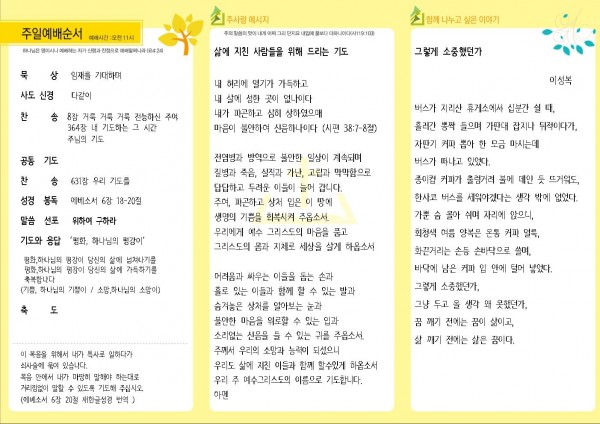 주일예배순서 예배시간 : 오전 11시
하나님은 영이시니 예배하는 자가 신령과 진정으로 예배할찌니라 (요4:24)
묵 상 임재를 기대하며
사도 신경 다같이
찬 송 8장 거룩 거룩 거룩 전능하신 주여
364장 내 기도하는 그 시간
주님의 기도
공동 기도
찬 송 631장 우리 기도를
성경 봉독 에베소서 6장 18-20절
말씀 선포 위하여 구하라
기도와 응답 '평화, 하나님의 평강이'
평화,하나님의 평강이 당신의 삶에 넘쳐나기를
평화,하나님의 평강이 당신의 삶에 가득하기를
축복합니다
(기쁨, 하나님의 기쁨이 / 소망,하나님의 소망이)
축 도
이 복음을 위해서 내가 특사로 일하다가
쇠사슬에 묶여 있습니다.
복음 안에서 내가 마땅히 말해야 하는대로
거리낌없이 말할 수 있도록 기도해 주십시오.
(에베소서 6장 20절 새한글성경 번역 )
주사랑 메시지
주의 말씀의 맛이 내게 어찌 그리 단지요 내입에 꿀보다 더하니이다(시119:103)
삶에 지친 사람들을 위해 드리는 기도
내 허리에 열기가 가득하고
내 살에 성한 곳이 없나이다
내가 피곤하고 심히 상하였으매
마음이 불안하여 신음하나이다 (시편 38:7-8절)
전염병과 방역으로 불안한 일상이 계속되며
질병과 죽음, 실직과 가난, 고립과 막막함으로
답답하고 두려운 이들이 늘어 갑니다.
주여, 피곤하고 상처 입은 이 땅에
생명의 기쁨을 회복시켜 주옵소서.
우리에게 예수 그리스도의 마음을 품고
그리스도의 몸과 지체로 세상을 살게 하옵소서
어려움과 싸우는 이들을 돕는 손과
홀로 있는 이들과 함께 할 수 있는 발과
숨겨놓은 상처를 알아보는 눈과
불안한 마음을 위로할 수 있는 입과
소리없는 신음을 들 수 있는 귀를 주옵소서.
주께서 우리의 소망과 능력이 되셨으니
우리도 삶에 지친 이들과 함께 할수있게 하옵소서
우리 주 예수그리스도의 이름으로 기도합니다.
아멘
함께 나누고 싶은 이야기
그렇게 소중했던가
이성복
버스가 지리산 휴게소에서 십분간 쉴 때,
흘러간 뽕짝 들으며 가판대 잡지나 뒤적이다가,
자판기 커피 뽑아 한 모금 마시는데
버스가 떠나고 있었다.
종이컵 커피가 출렁거려 불에 데인 듯 뜨거워도,
한사코 버스를 세워야겠다는 생각 밖에 없었다.
가쁜 숨 몰아 쉬며 자리에 앉으니,
회청색 여름 양복은 온통 커피 얼룩,
화끈거리는 손등 손바닥으로 쓸며,
바닥에 남은 커피 입 안에 털어 넣었다.
그렇게 소중했던가,
그냥 두고 올 생각 왜 못했던가,
꿈 깨기 전에는 꿈이 삶이고,
삶 깨기 전에는 삶은 꿈이다.